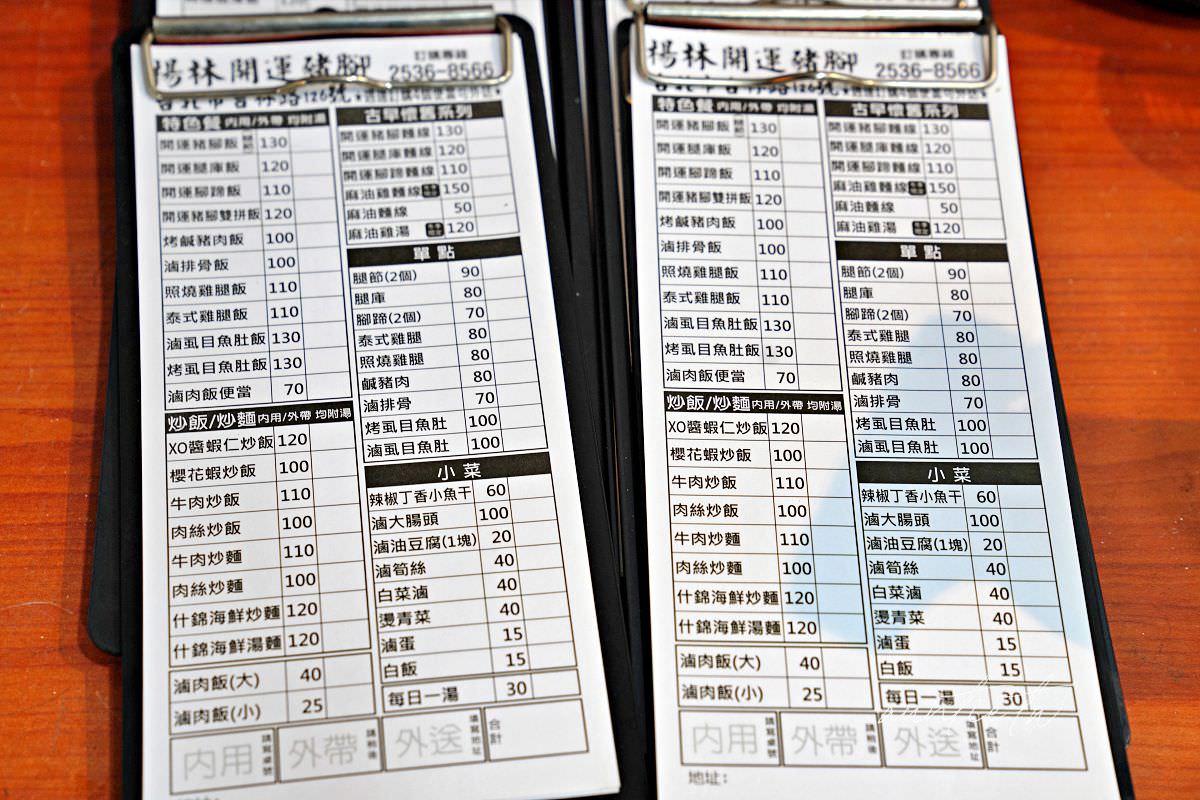 楊林開運豬腳 訂購專線 2536-8566
台北市吉林路126號
特色餐 內用/外帶 均附湯
開運豬腳飯 130
開運腿庫飯 120
開運腳蹄飯 110
開運豬腳雙拼飯 120
烤鹹豬肉飯 100
滷排骨飯 100
照燒雞腿飯 110
泰式雞腿飯 110
滷虱目魚肚飯 130
烤虱目魚肚飯 130
滷肉飯便當 70
炒飯/炒麵 內用/外帶 均附湯
XO醬蝦仁炒飯 120
櫻花蝦炒飯 100
牛肉炒飯 110
肉絲炒飯 100
牛肉炒麵 110
肉絲炒麵 100
什錦海鮮炒麵 120
什錦海鮮湯麵 120
滷肉飯(大) 40
滷肉飯(小) 25
古早懷舊系列
開運豬腳麵線 130
開運腿庫麵線 120
開運腳蹄麵線 110
麻油雞麵線 150
麻油麵線 50
麻油雞湯 120
單點
腿節(2個) 90
腿庫 80
腳蹄(2個) 70
泰式雞腿 80
照燒雞腿 80
鹹豬肉 80
滷排骨 70
烤虱目魚肚 100
滷虱目魚肚 100
小菜
辣椒丁香小魚干 60
滷大腸頭 100
滷油豆腐(1塊) 20
滷筍絲 40
白菜滷 40
燙青菜 40
滷蛋 15
白飯 15
每日一湯 30
內用 請寫桌號 外帶 請稍後 外送 請寫地址 合計
楊林開運豬腳 訂購專線 2536-8566
台北市吉林路126號
特色餐 內用/外帶 均附湯
開運豬腳飯 130
開運腿庫飯 120
開運腳蹄飯 110
開運豬腳雙拼飯 120
烤鹹豬肉飯 100
滷排骨飯 100
照燒雞腿飯 110
泰式雞腿飯 110
滷虱目魚肚飯 130
烤虱目魚肚飯 130
滷肉飯便當 70
炒飯/炒麵 內用/外帶 均附湯
XO醬蝦仁炒飯 120
櫻花蝦炒飯 100
牛肉炒飯 110
肉絲炒飯 100
牛肉炒麵 110
肉絲炒麵 100
什錦海鮮炒麵 120
什錦海鮮湯麵 120
滷肉飯(大) 40
滷肉飯(小) 25
古早懷舊系列
開運豬腳麵線 130
開運腿庫麵線 120
開運腳蹄麵線 110
麻油雞麵線 150
麻油麵線 50
麻油雞湯 120
單點
腿節(2個) 90
腿庫 80
腳蹄(2個) 70
泰式雞腿 80
照燒雞腿 80
鹹豬肉 80
滷排骨 70
烤虱目魚肚 100
滷虱目魚肚 100
小菜
辣椒丁香小魚干 60
滷大腸頭 100
滷油豆腐(1塊) 20
滷筍絲 40
白菜滷 40
燙青菜 40
滷蛋 15
白飯 15
每日一湯 30
內用 請寫桌號 外帶 請稍後 外送 請寫地址 合計
地址: